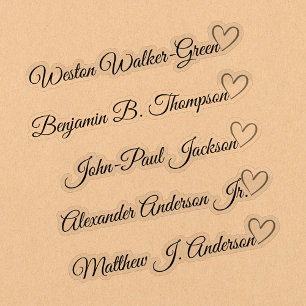 Weston Walker-Green
Benjamin B. Thompson
John-Paul Jackson
Alexander Anderson Jr.
Matthew J. Anderson